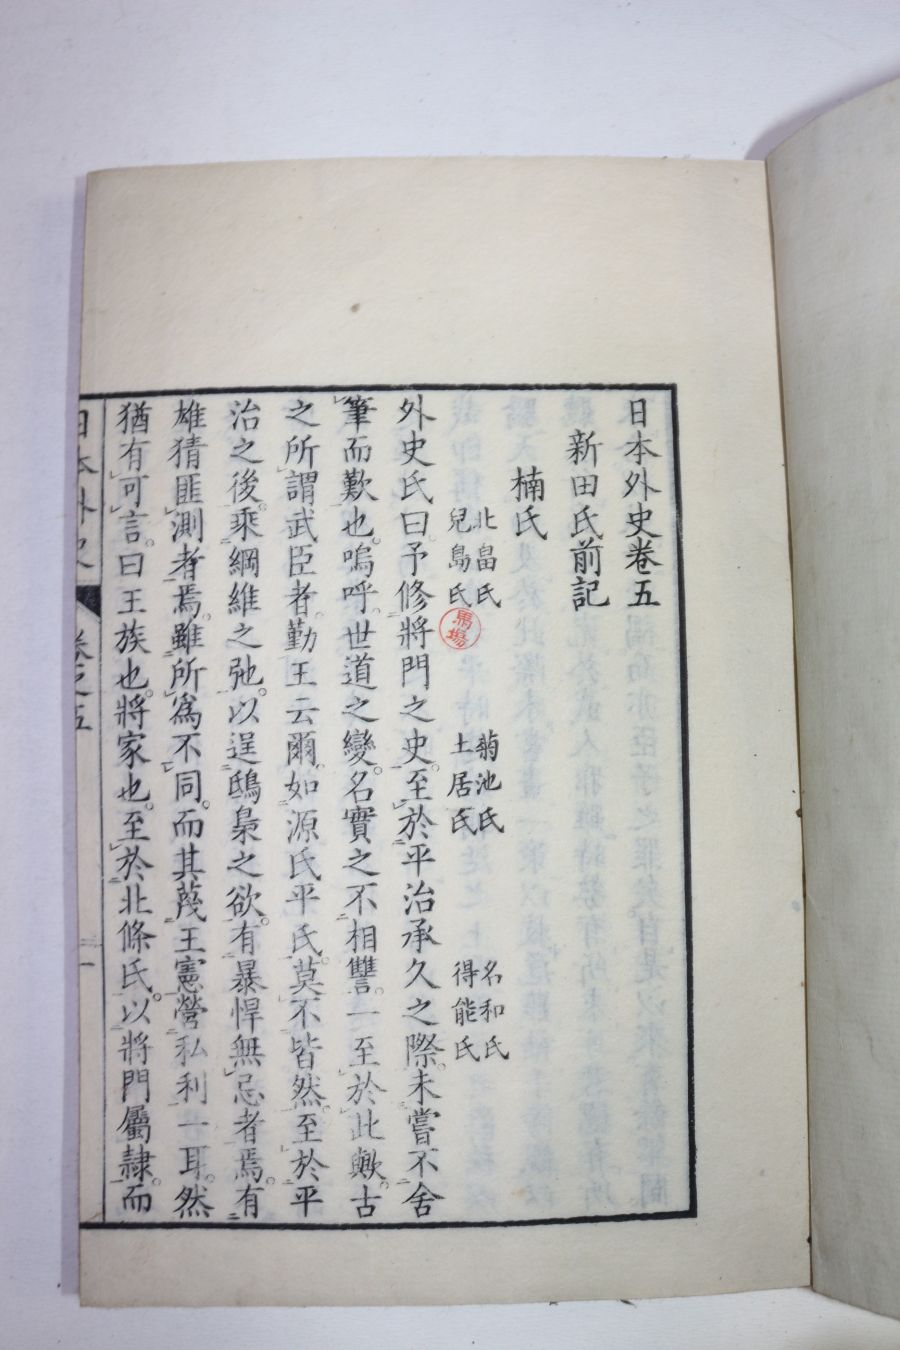 日本外史卷五
新田氏前記
楠氏
北畠氏 菊池氏 名和氏
兒島氏 土居氏 得能氏
馬場
外史氏曰予修將門之史至於平治承久之際未嘗不舍
筆而歎也嗚呼世道之變名實之不相讐一至於此歟古
之所謂武臣者勤王云爾如源氏平氏莫不皆然至於平
治之後乘綱維之弛以逞鴟梟之欲有暴悍無忌者焉有
雄猜匪測者焉雖所爲不同而其蔑王憲營私利一耳然
猶有可言曰王族也將家也至於北條氏以將門屬隷而
日本外史
卷之五
一